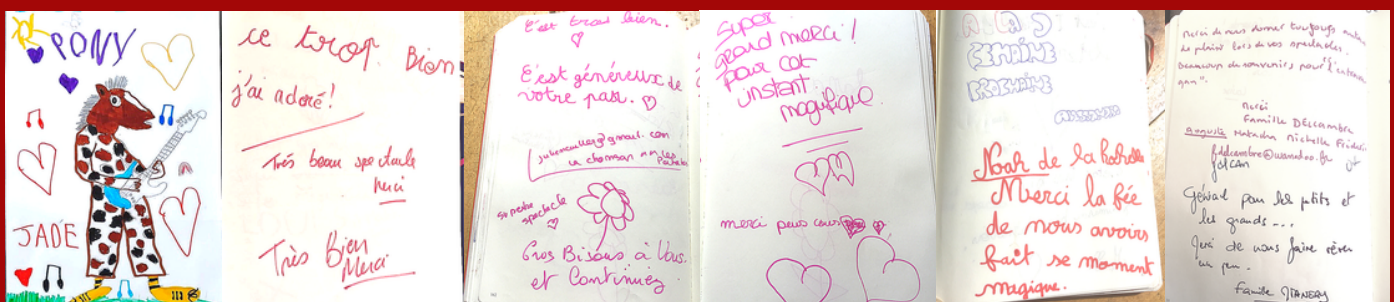 PONY
JADE
ce trop Bien
j'ai adoré!
Très beau spectacle
Merci
Très Bien
Merci
C'est trop bien.
C'est généreux de
votre part.
la chanson
spectacle
Gros Bisous à Vous
et Continuez
Super
grand merci!
pour cet
instant
magifique.
merci pour
A LA
SEMAINE
PROCHAINE
Noah de la Rochelle
Merci la fée
de nous avoirs
fait se moment
magique.
Merci de nous donner toujours autant
de plaisir lors de vos spectacles.
beaucoup de souvenirs pour
Merci
Famille
Natacha Michelle
Génial pour les petits et
les grands...
de nous faire rêver
un peu.
Famille